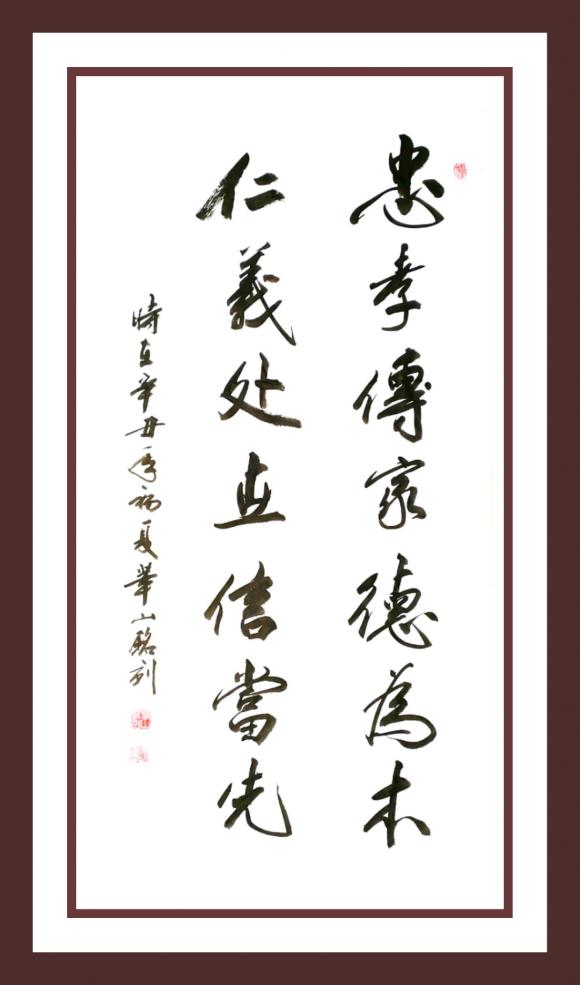 忠孝傳家德為本
仁義处世信當先
時在辛丑年初夏華山銘刻